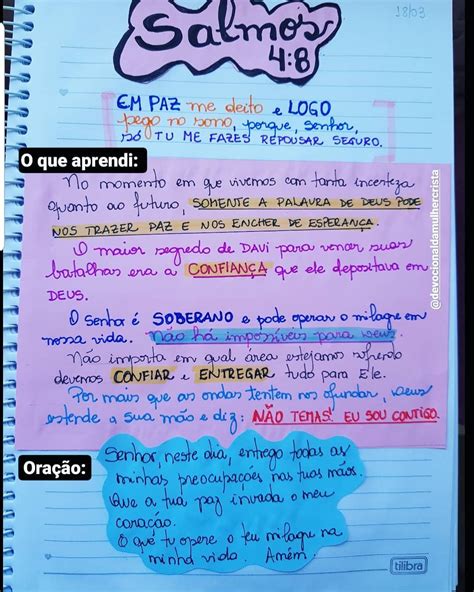 18/03
Salmos
4:8
EM PAZ me deito e LOGO
pego no sono, porque, Senhor,
só TU ME FAZES REPOUSAR SEGURO.
O que aprendi:
No momento em que vivemos com tanta incerteza
quanto ao futuro, SOMENTE A PALAVRA DE DEUS PODE
NOS TRAZER PAZ E NOS ENCHER DE ESPERANÇA.
O maior segredo de DAVI para vencer suas
batalhas era a CONFIANÇA que ele depositava em
DEUS.
O Senhor é SOBERANO e pode operar o milagre em
nossa vida. Não há impossíveis para Deus.
Não importa em qual área estejamos sofrendo
devemos CONFIAR e ENTREGAR tudo para Ele.
Por mais que as ondas tentem nos afundar, Deus
estende a sua mão e diz: NÃO TEMAS! EU SOU CONTIGO.
@devocionaldamulhercrista
Oração:
Senhor, neste dia, entrego todas as
minhas preocupações nas tuas mãos.
Que a tua paz invada o meu
coração.
O que tu opere o teu milagre na
minha vida. Amém.
tilibra